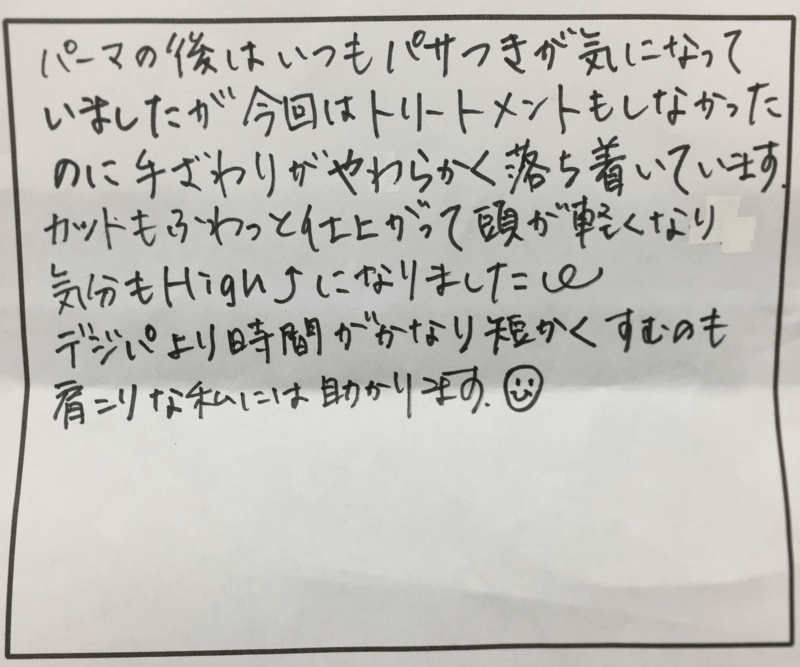 パーマの後はいつもパサつきが気になって
いましたが今回はトリートメントもしなかった
のに手ざわりがやわらかく落ち着いています.
カットもふわっと仕上がって頭が軽くなり
気分もHigh⤴になりました
デジパより時間がかなり短かくすむのも
肩こりな私には助かります.☺